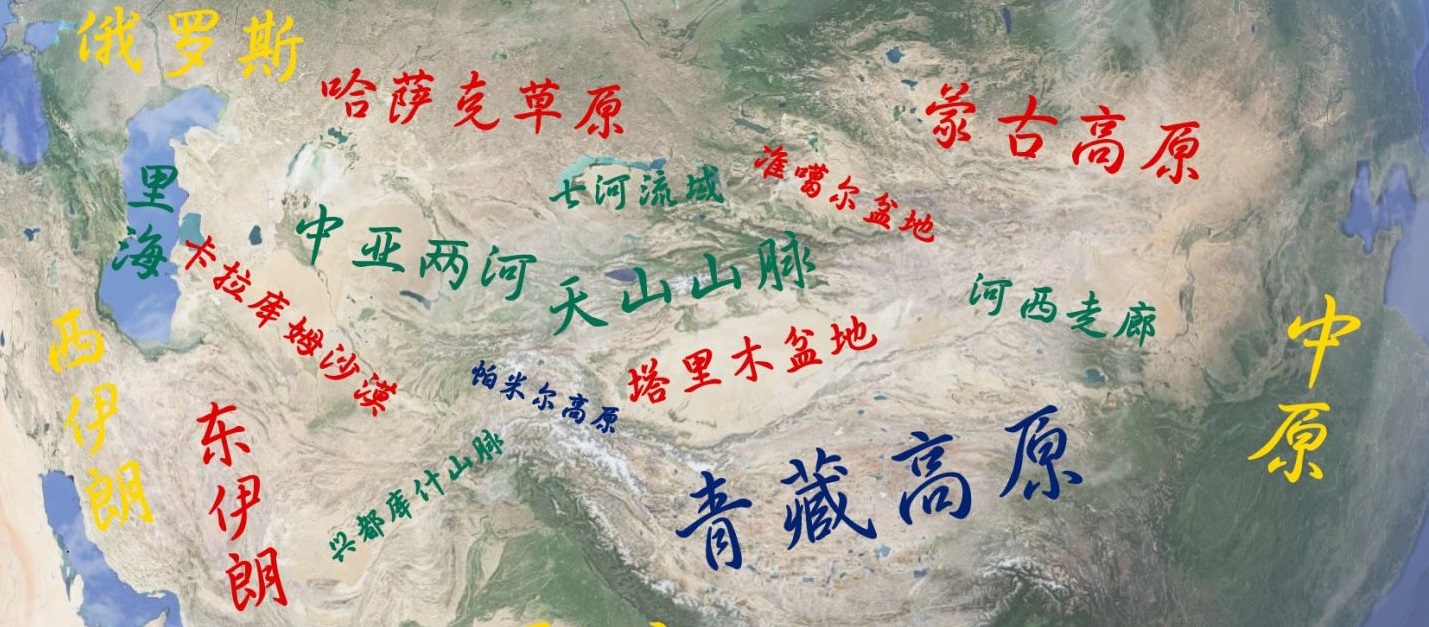 俄罗斯
哈萨克草原
蒙古高原
准噶尔盆地
七河流域
里海
中亚两河
天山山脉
卡拉库姆沙漠
河西走廊
中原
西伊朗
塔里木盆地
帕米尔高原
东伊朗
兴都库什山脉
青藏高原